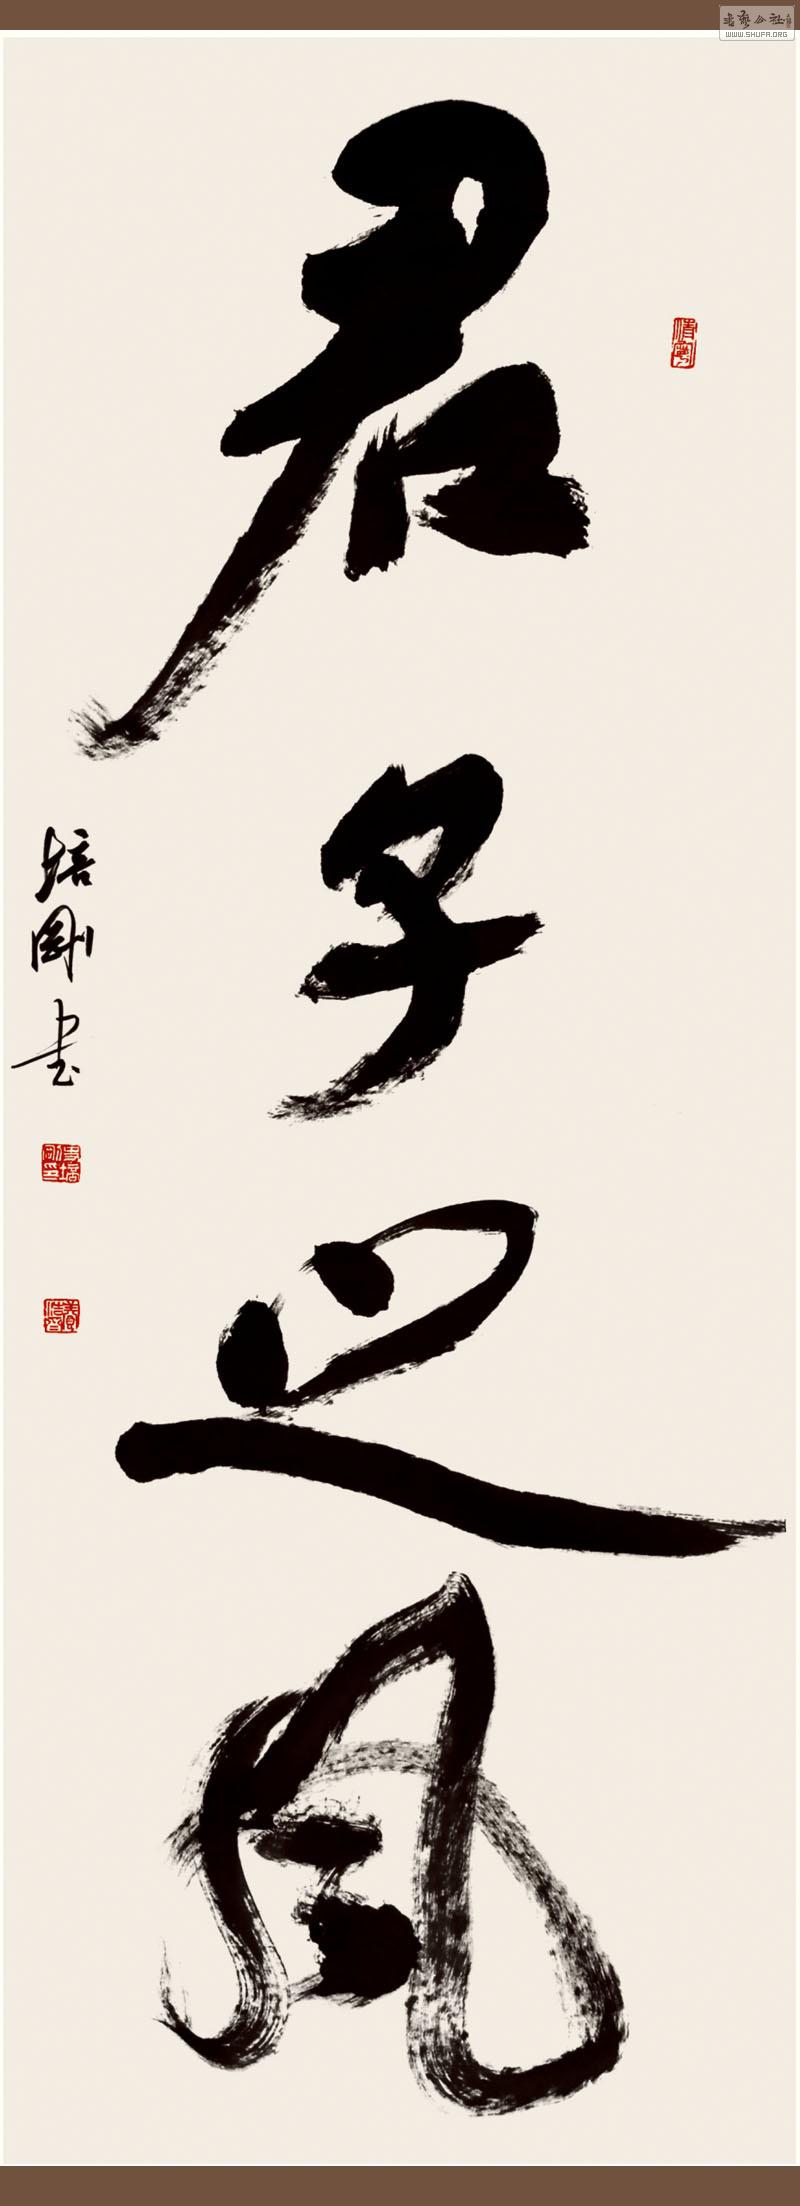 君子之风
培刚书
书艺公社
WWW.SHUFA.ORG